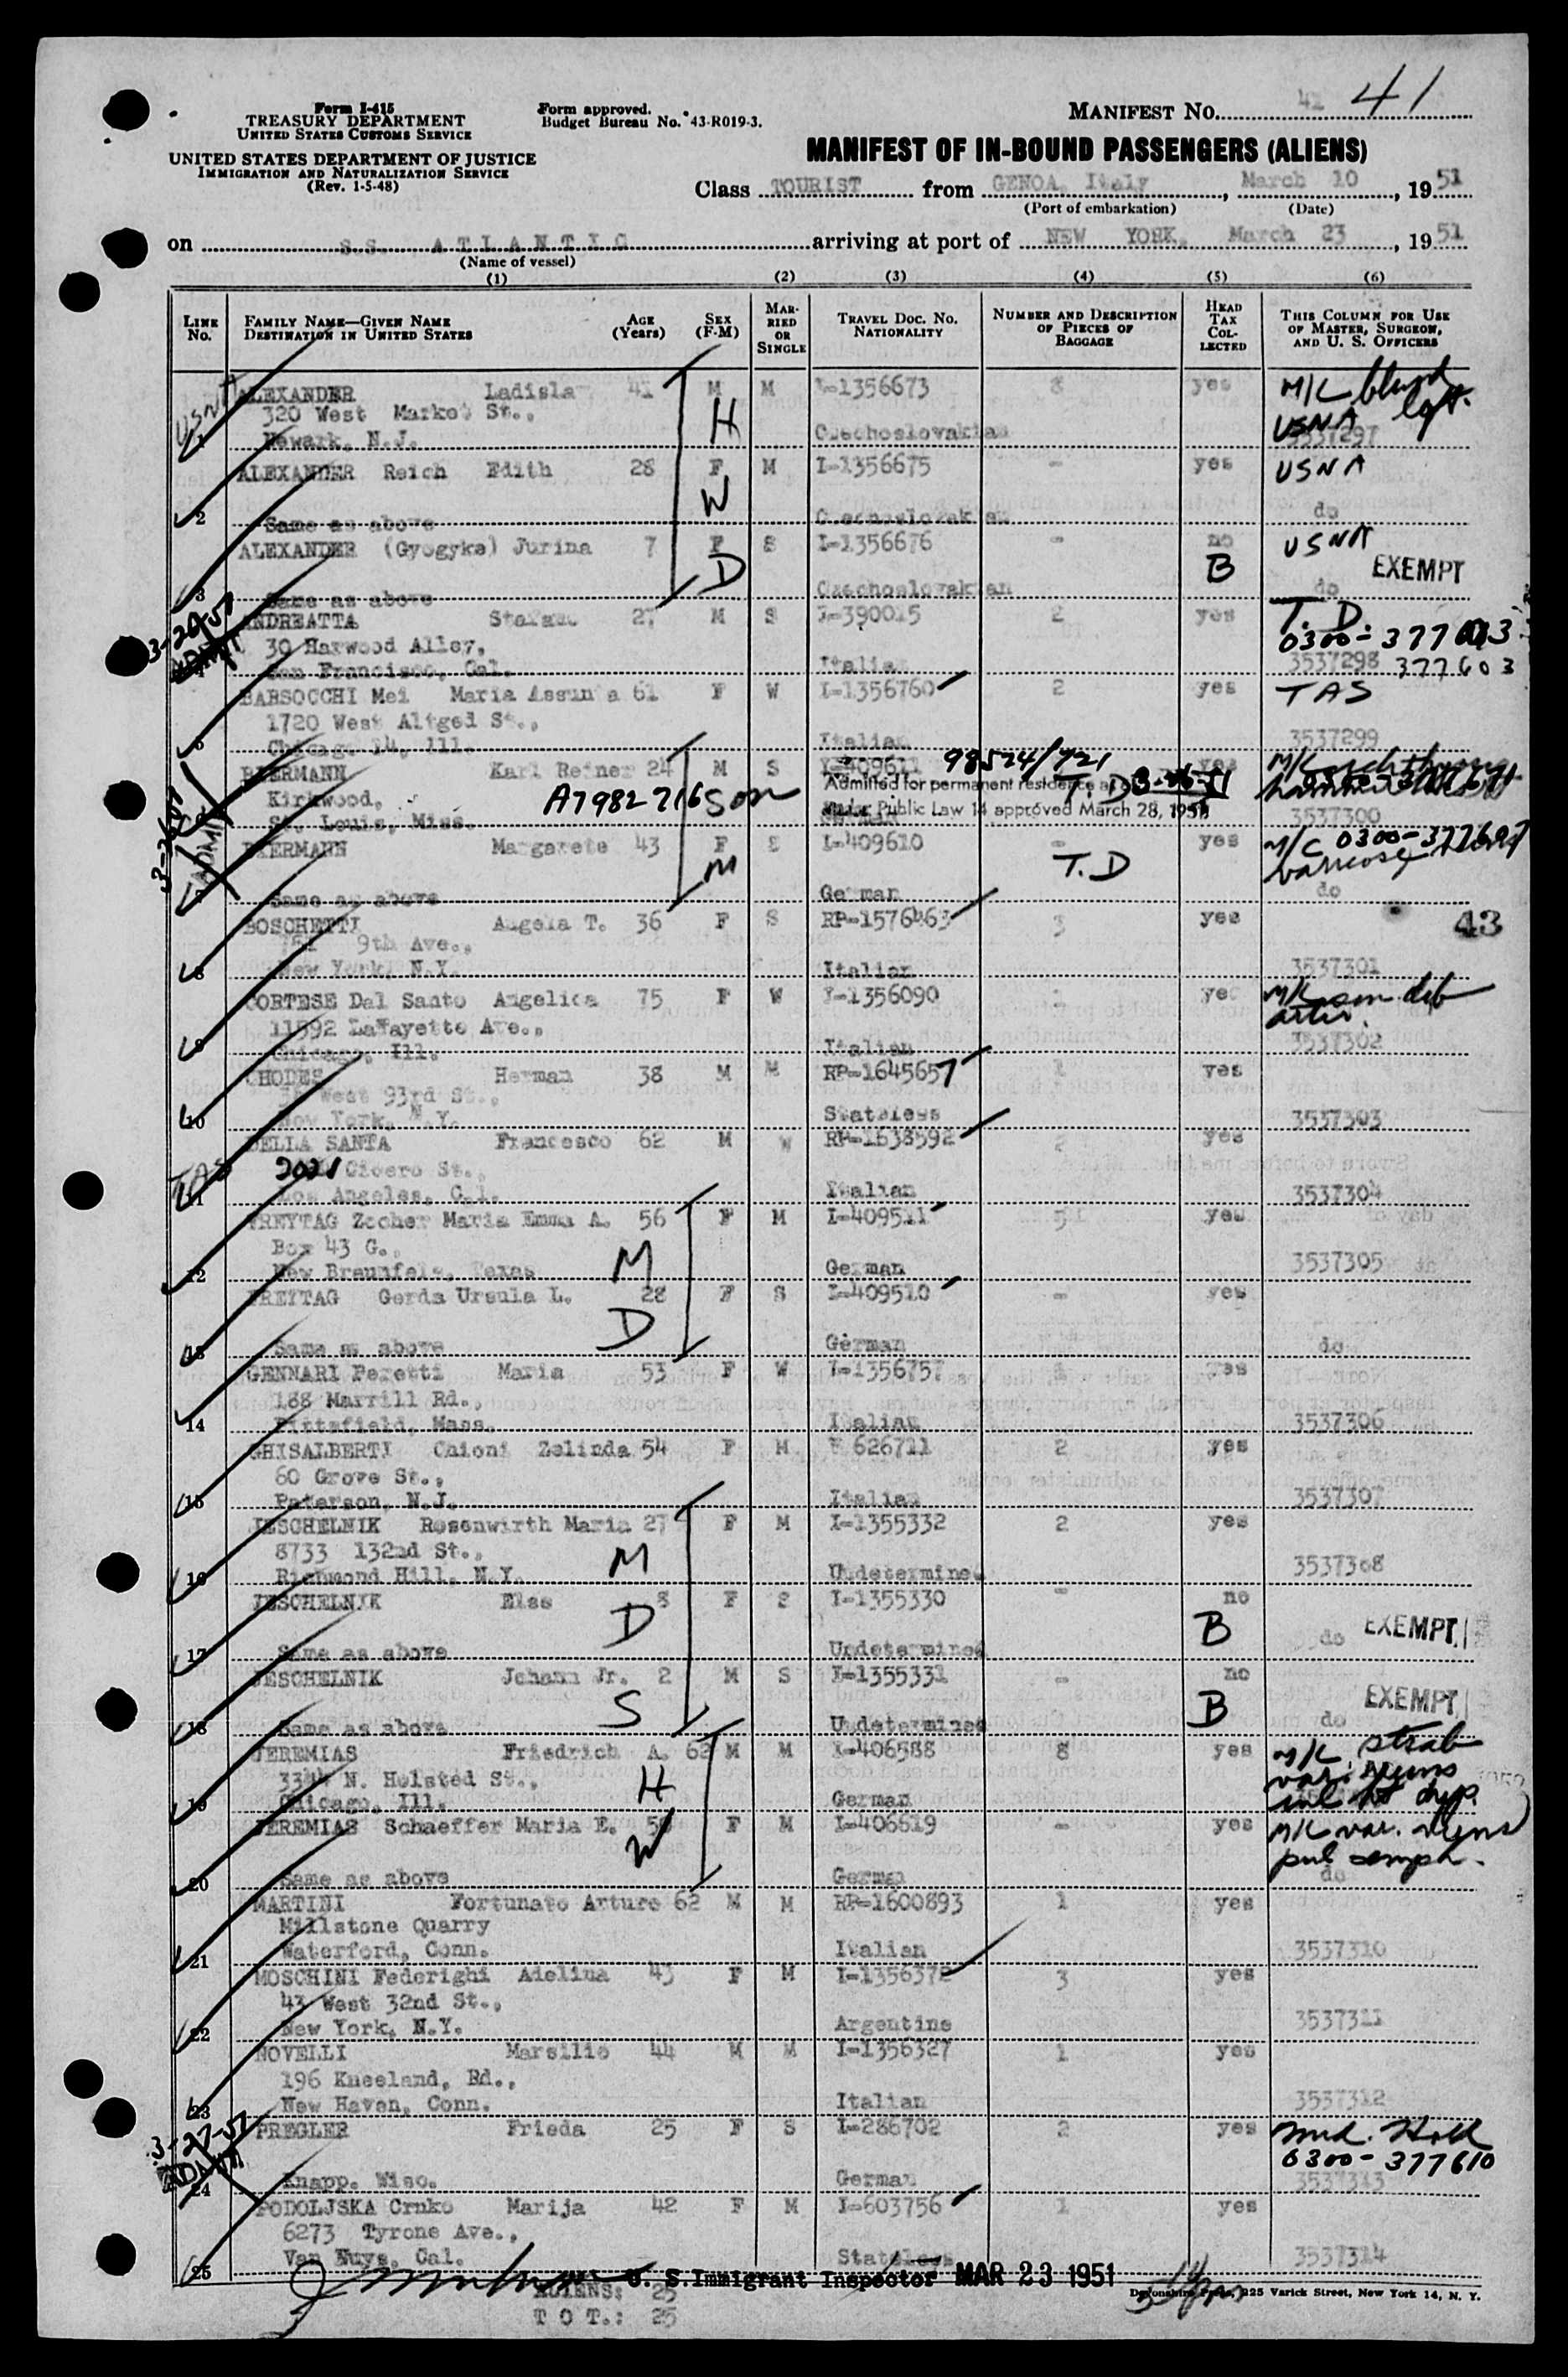 Form I-415
TREASURY DEPARTMENT
UNITED STATES CUSTOMS SERVICE
UNITED STATES DEPARTMENT OF JUSTICE
IMMIGRATION AND NATURALIZATION SERVICE
(Rev. 1-5-48)
Form approved.
Budget Bureau No. 43-R019-3.
MANIFEST No. 41 41
MANIFEST OF IN-BOUND PASSENGERS (ALIENS)
Class TOURIST from GENOA, Italy, March 10, 1951
(Port of embarkation) (Date)
on S.S. ATLANTIC arriving at port of NEW YORK, March 23, 1951
(Name of vessel)
(1) (2) (3) (4) (5) (6)
LINE No. FAMILY NAME—GIVEN NAME DESTINATION IN UNITED STATES AGE (Years) SEX (F-M) MARRIED OR SINGLE TRAVEL DOC. No. NATIONALITY NUMBER AND DESCRIPTION OF PIECES OF BAGGAGE HEAD TAX COLLECTED THIS COLUMN FOR USE OF MASTER, SURGEON, AND U. S. OFFICERS
USNA ALEXANDER Ladislav 41 M M I-1356673 8 yes M/C blind
320 West Market St., H USNA lgt.
1 Newark, N.J. Czechoslovakian 3537297
ALEXANDER Reich Edith 28 F M I-1356675 - yes USNA
W
2 Same as above Czechoslovakian do
ALEXANDER (Gyogyka) Jurina 7 F S I-1356676 - no USNA
D B EXEMPT
3 Same as above Czechoslovakian do
3-26-51 ANDREATTA Stefano 27 M S I-390015 2 yes T. D.
ADMIT 30 Harwood Alley, 0300-377603
4 San Francisco, Cal. Italian 3537298 377603
BARSOCCHI Mei Maria Assunta 61 F W I-1356760 2 yes TAS
1720 West Altged St.,
5 Chicago 14, Ill. Italian 3537299
BIERMANN Karl Reiner 24 M S I-409611 98524/721 yes M/C
Kirkwood, A7982716 Son Admitted for permanent residence T. D
St. Louis, Miss. Under Public Law 14 approved March 28, 1951 3537300
BIERMANN Margarete 43 F S I-409610 - yes M/C 0300-377697
ADMIT M T.D varicose
7 Same as above German do
BOSCHETTI Angela T. 36 F S RP-1576463 3 yes 43
9th Ave.,
8 New York, N.Y. Italian 3537301
CORTESE Dal Santo Angelica 75 F W I-1356090 - yes M/C sen. deb
11592 LaFayette Ave., arter.
9 Chicago, Ill. Italian 3537302
CHODES Herman 38 M M RP-1645657 1 yes
West 93rd St.,
10 New York, N.Y. Stateless 3537303
DELLA SANTA Francesco 62 M W RP-1638592 2 yes
TAS 2021 Cicero St.,
11 Los Angeles, Cal. Italian 3537304
FREYTAG Zocher Maria Emma A. 56 F M I-409511 5 yes
Box 43 G.,
12 New Braunfels, Texas M German 3537305
FREYTAG Gerda Ursula L. 28 F S I-409510 - yes
D
13 Same as above German do
GENNARI Peretti Maria 53 F W I-1356757 yes
188 Marrill Rd.,
14 Pittsfield, Mass. Italian 3537306
GHISALBERTI Chioni Zelinda 54 F M 626711 2 yes
60 Grove St.,
15 Paterson, N.J. Italian 3537307
JESCHELNIK Rosenwirth Maria 27 F M I-1355332 2 yes
8733 132nd St., M
16 Richmond Hill, N.Y. Undetermined 3537308
JESCHELNIK Elsa 8 F S I-1355330 - no
D B EXEMPT
17 Same as above Undetermined do
JESCHELNIK Johann Jr. 2 M S I-1355331 - no
S B EXEMPT
18 Same as above Undetermined do
JEREMIAS Friedrich A. 62 M M I-406588 8 yes M/C strab
3344 N. Holsted St., H var. veins
19 Chicago, Ill. German
JEREMIAS Schaeffer Maria E. F M I-406519 - yes M/C var. veins
W pul emph.
20 Same as above German do
MARTINI Fortunato Arturo 62 M M RP-1600893 1 yes
Millstone Quarry
21 Waterford, Conn. Italian 3537310
MOSCHINI Federighi Adelina 43 F M I-1356372 3 yes
43 West 32nd St.,
22 New York, N.Y. Argentine 3537311
NOVELLI Marsilio 44 M M I-1356327 1 yes
196 Kneeland, Rd.,
23 New Haven, Conn. Italian 3537312
3-27-51 PREGLER Frieda 25 F S I-286702 2 yes Med. Hold
ADMIT 0300-377610
24 Knapp. Wisc. German 3537313
PODOLJSKA Crnko Marija 42 F M I-603756 1 yes
6273 Tyrone Ave.,
25 Van Nuys, Cal. Stateless 3537314
U. S. Immigrant Inspector MAR 23 1951
ALIENS: 25
TOT.: 25
Devonshire Press, 225 Varick Street, New York 14, N. Y.